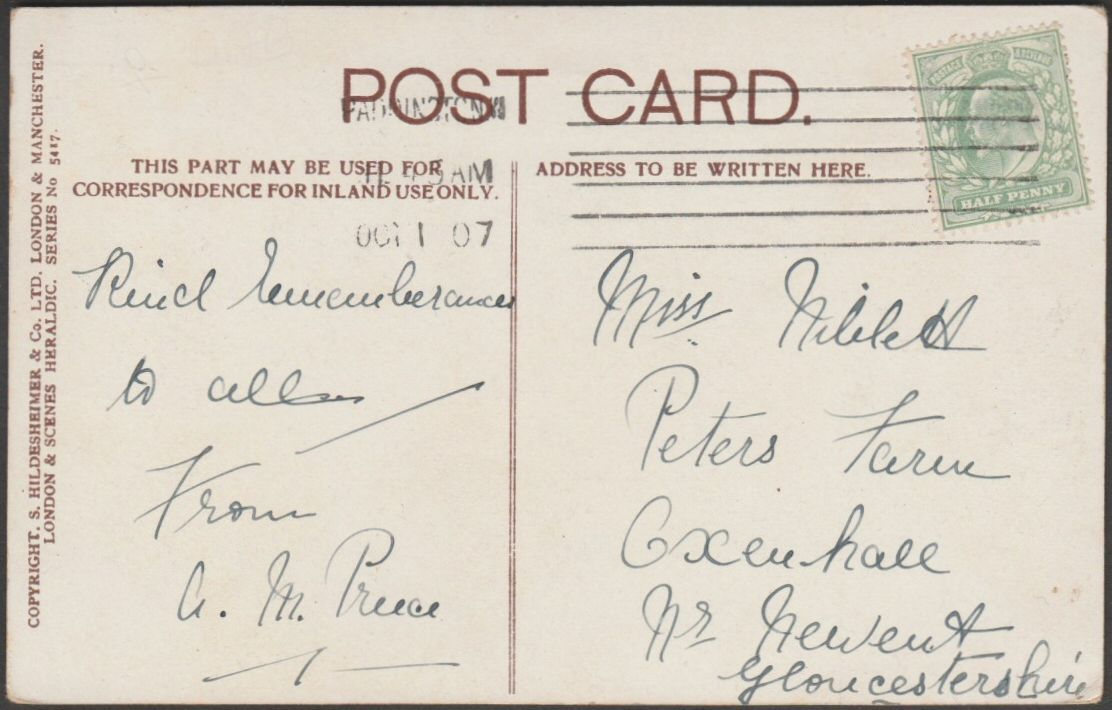 POST CARD.
PADDINGTON W
AM
OCT 1 07
POSTAGE REVENUE
HALF PENNY
THIS PART MAY BE USED FOR
CORRESPONDENCE FOR INLAND USE ONLY.
ADDRESS TO BE WRITTEN HERE.
Kind Rememberances
to all
From
A. M. Price
Miss Niblett
Peters Farm
Oxenhall
Nr Newent
Gloucestershire
COPYRIGHT. S. HILDESHEIMER & Co. LTD. LONDON & MANCHESTER.
LONDON & SCENES HERALDIC. SERIES No 5417.